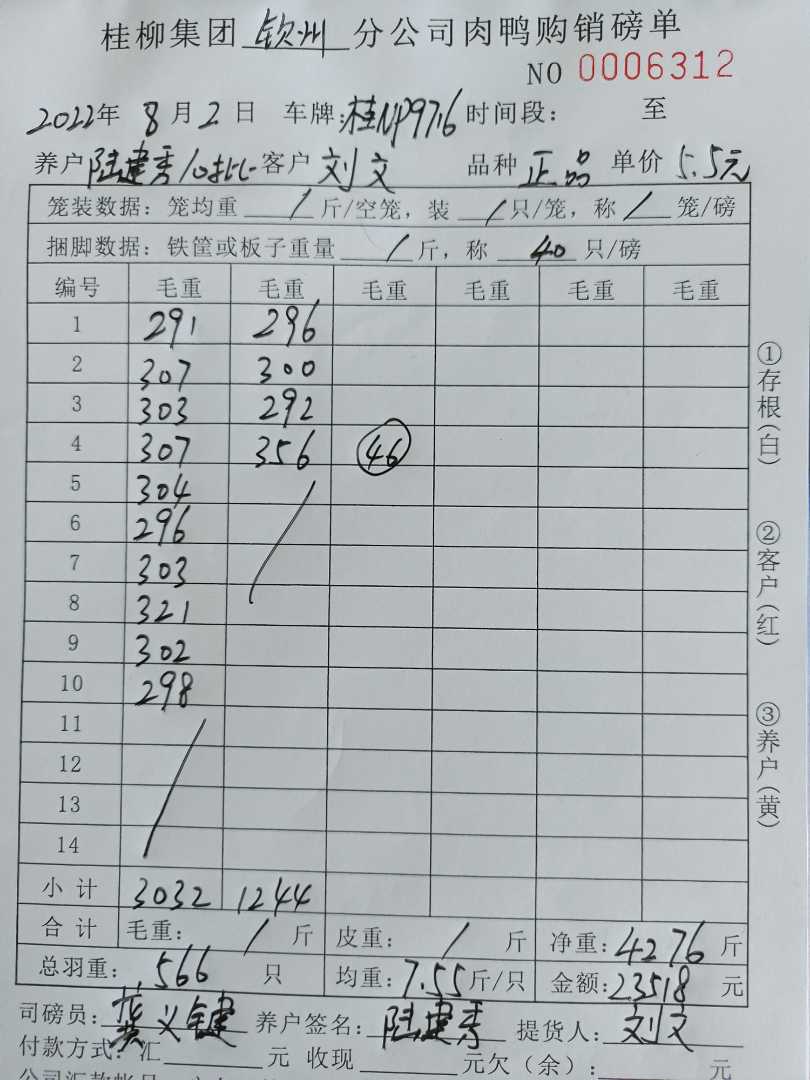 桂柳集团 钦州 分公司肉鸭购销磅单
NO 0006312
2022年 8 月 2 日 车牌:桂NP9716 时间段: 至
养户 陆建秀10批 客户 刘文 品种 正品 单价 5.5元
笼装数据: 笼均重 / 斤/空笼, 装 / 只/笼, 称 / 笼/磅
捆脚数据: 铁筐或板子重量 / 斤, 称 40 只/磅
编号 毛重 毛重 毛重 毛重 毛重 毛重
1 291 296
2 307 300
3 303 292
4 307 356 46
5 304
6 296
7 303
8 321
9 302
10 298
11
12
13
14
小计 3032 1244
合计 毛重: / 斤 皮重: / 斤 净重: 4276 斤
总羽重: 566 只 均重: 7.55 斤/只 金额: 23518 元
司磅员: 义键 养户签名: 陆建秀 提货人: 刘文
付款方式: 汇 元 收现 元欠(余): 元
公司汇款帐号
①存根(白)
②客户(红)
③养户(黄)